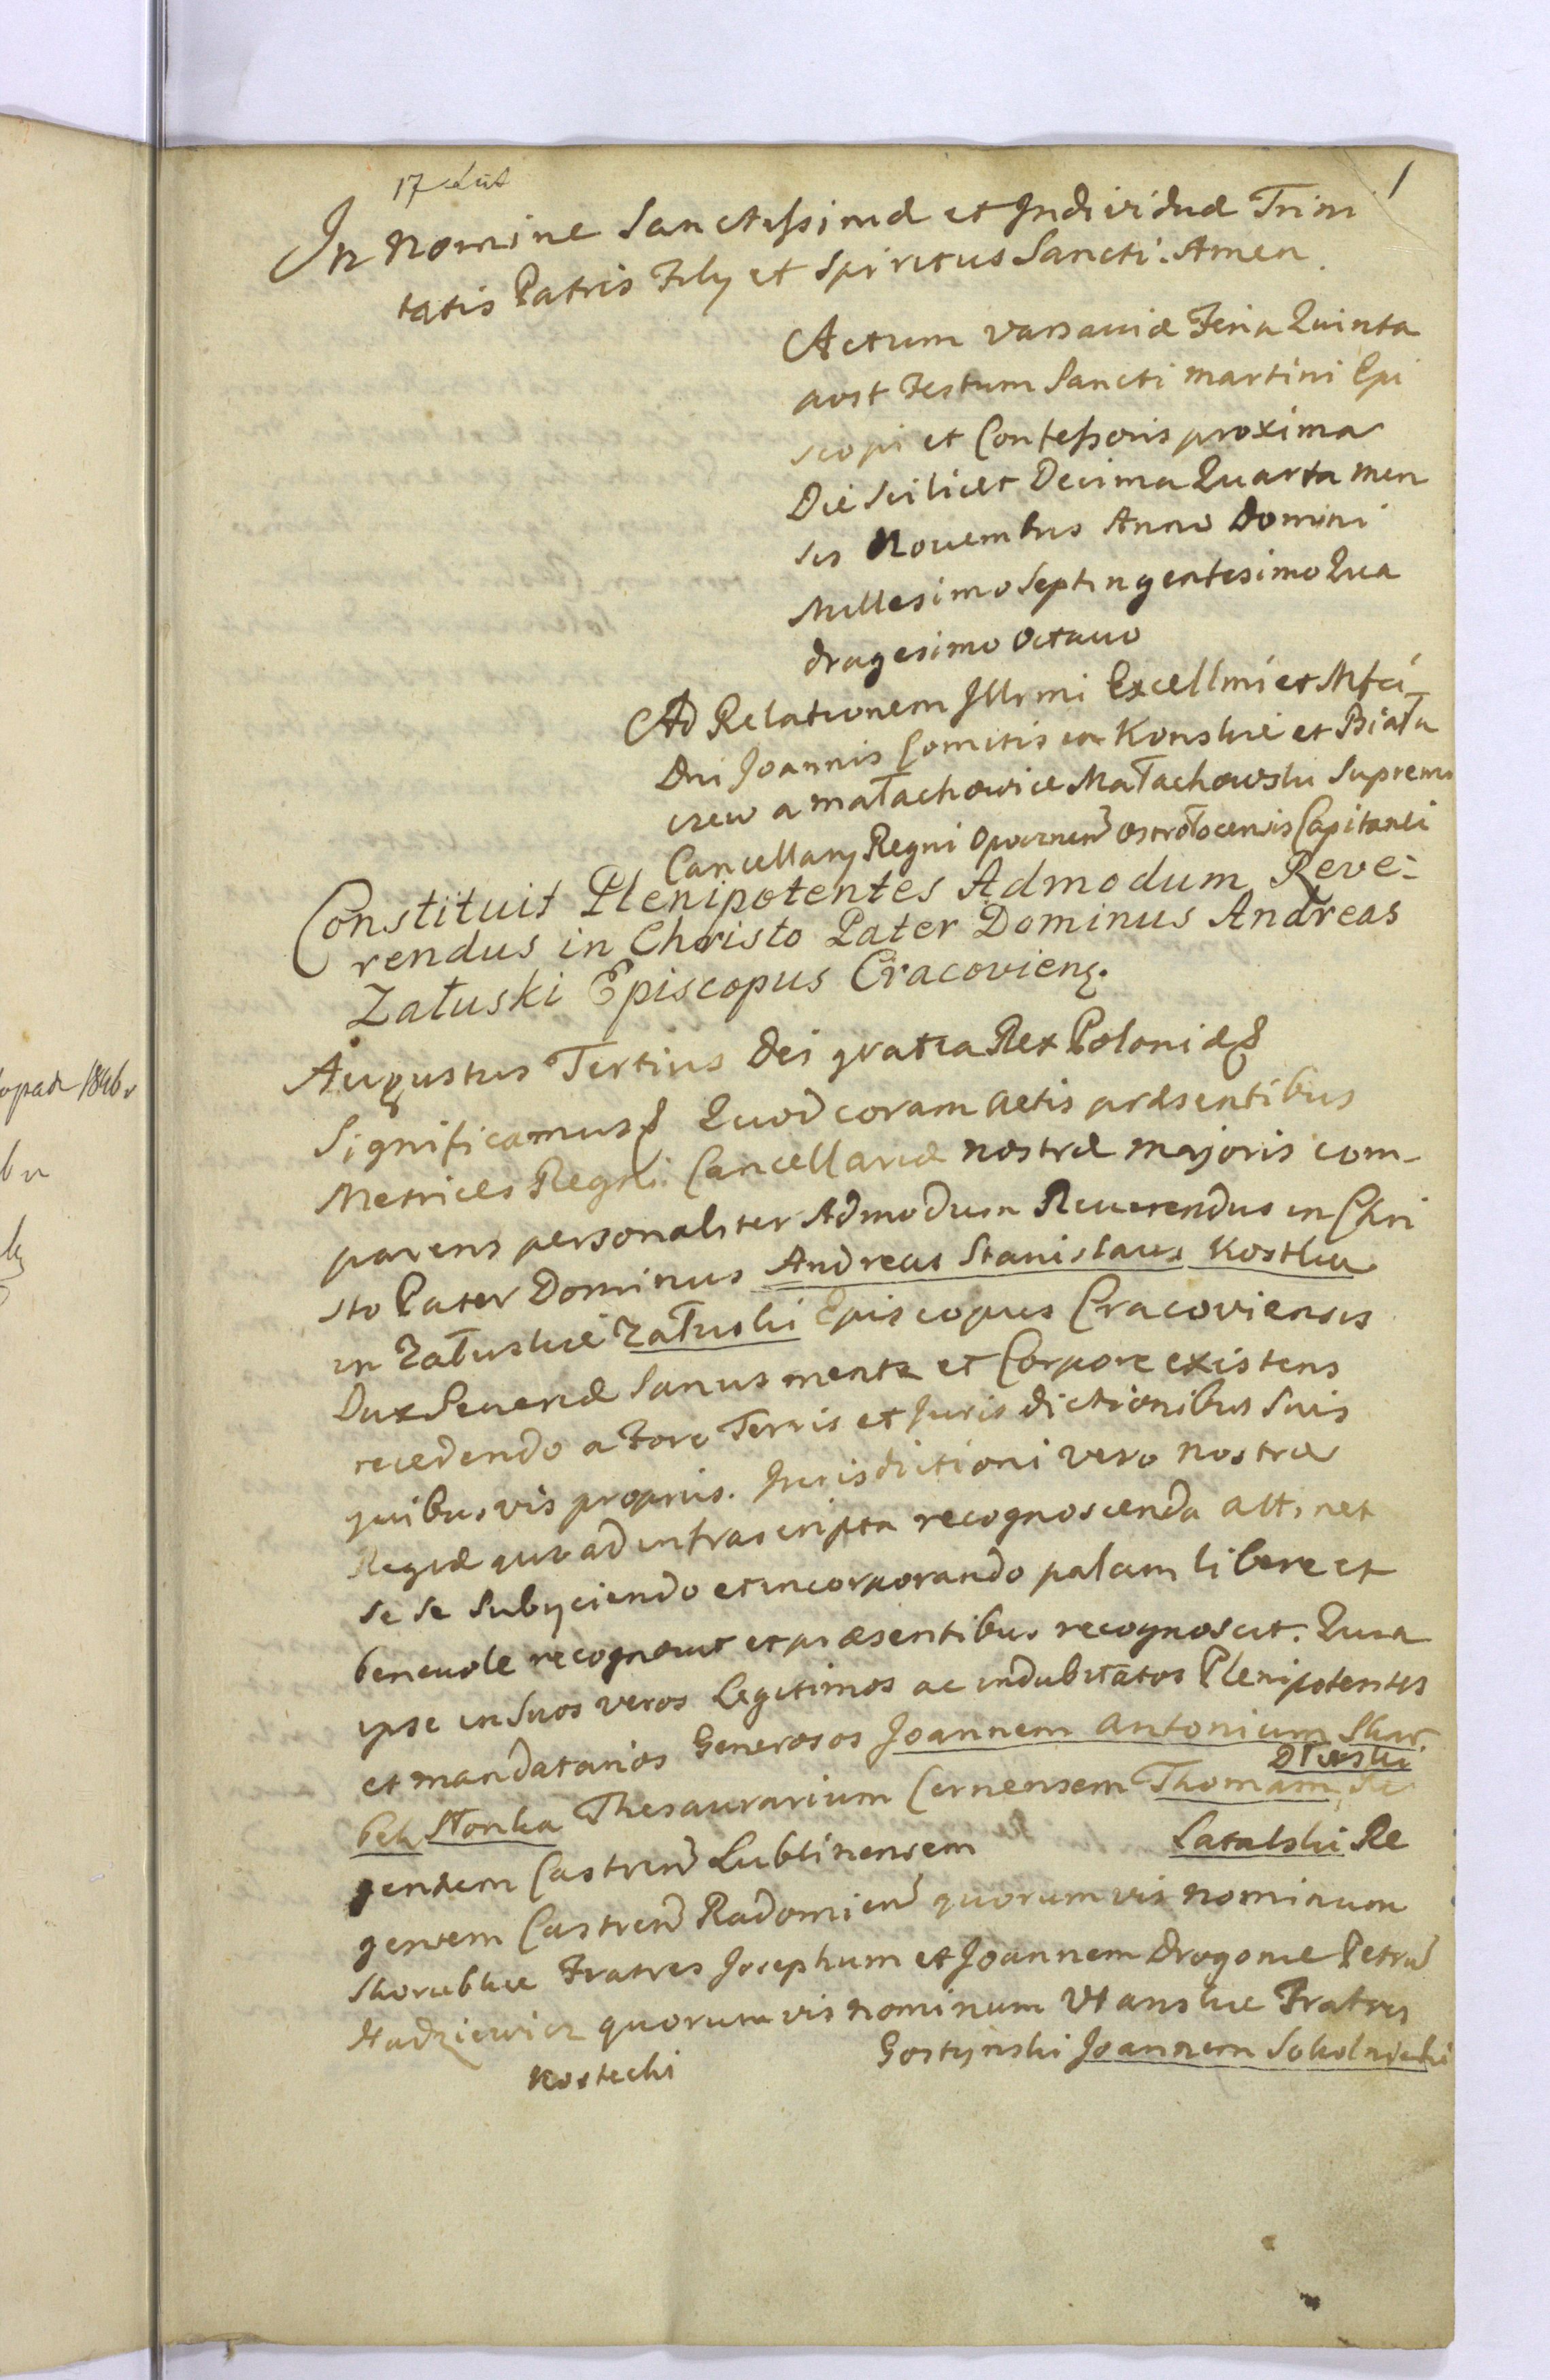 1
In Nomine Sanctissimæ et Individuæ Trini
tatis Patris Filij et Spiritus Sancti. Amen.
Actum Varsaviæ Feria Quinta
post Festum Sancti Martini Epi
scopi et Confessoris proxima
Die Scilicet Decima Quarta Men
sis Novembris Anno Domini
Millesimo Septingentesimo Qua
dragesimo Octavo
Ad Relationem Illrmi Excellmi et Mfci
Dni Joannis Comitis in Konskie et Biała
czew a Małachowice Małachowski Supremi
Cancellarij Regni Opocznen Ostrołocensis Capitanei
Constituit Plenipotentes Admodum Reve-
rendus in Christo Pater Dominus Andreas
Załuski Episcopus Cracovien.
Augustus Tertius Dei gratia Rex Poloniæ &
Significamus & Quod coram Actis præsentibus
Metrices Regni Cancellariæ nostræ majoris com-
parens personaliter Admodum Reverendus in Chri
sto Pater Dominus Andreas Stanislaus Kostka
in Załuskie Załuski Episcopus Cracoviensis
Dux Severiæ Sanus mente et Corpore existens
recedendo a Foro Terris et Jurisdictionibus Suis
quibusvis proprijs. Jurisdictioni vero nostræ
Regiæ quo ad infrascripta recognoscenda attinet
se se Subijciendo et incorporando palam libere et
benevole recognovit et præsentibus recognoscit. Quia
ipse in Suos veros Legitimos ac indubitatos Plenipotentes
et mandatarios Generosos Joannem Antonium Skar
bek Słonka Thesaurarium Cernensem Thomam Dłuski Re
gentem Castren Lublinensem Łatalski Re
gentem Castren Radomien quorumvis nominum
Skorubskie Fratres Josephum et Joannem Drogonie Petrum
Hadziewicz quorumvis nominum Ulanskie Fratres
Kostecki Gostynski Joannem Sokolnicki